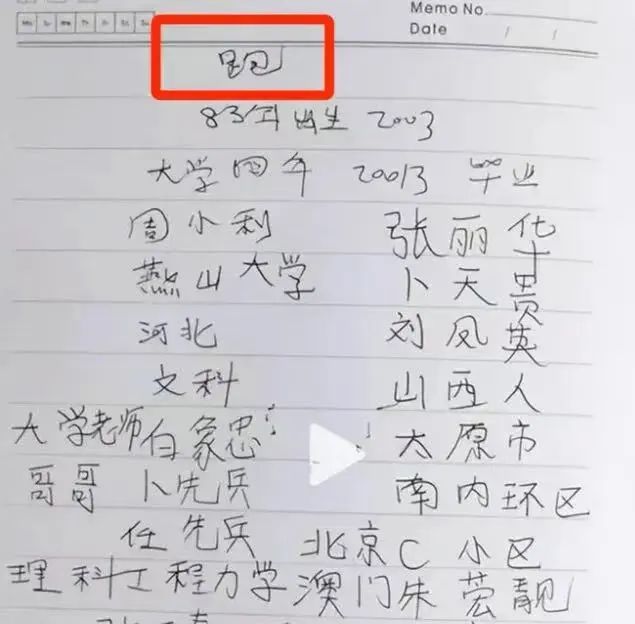 Memo No.
Mo Tu We Th Fr Sa Su
Date / /
跑
83年出生 2003
大学四年 20013 毕业
周小利 张丽华
燕山大学 卜天贵
河北 刘凤英
文科 山西人
大学老师白象忠 太原市
哥哥 卜先兵 南内环区
任先兵 北京C小区
理科工程力学 澳门朱芸靓